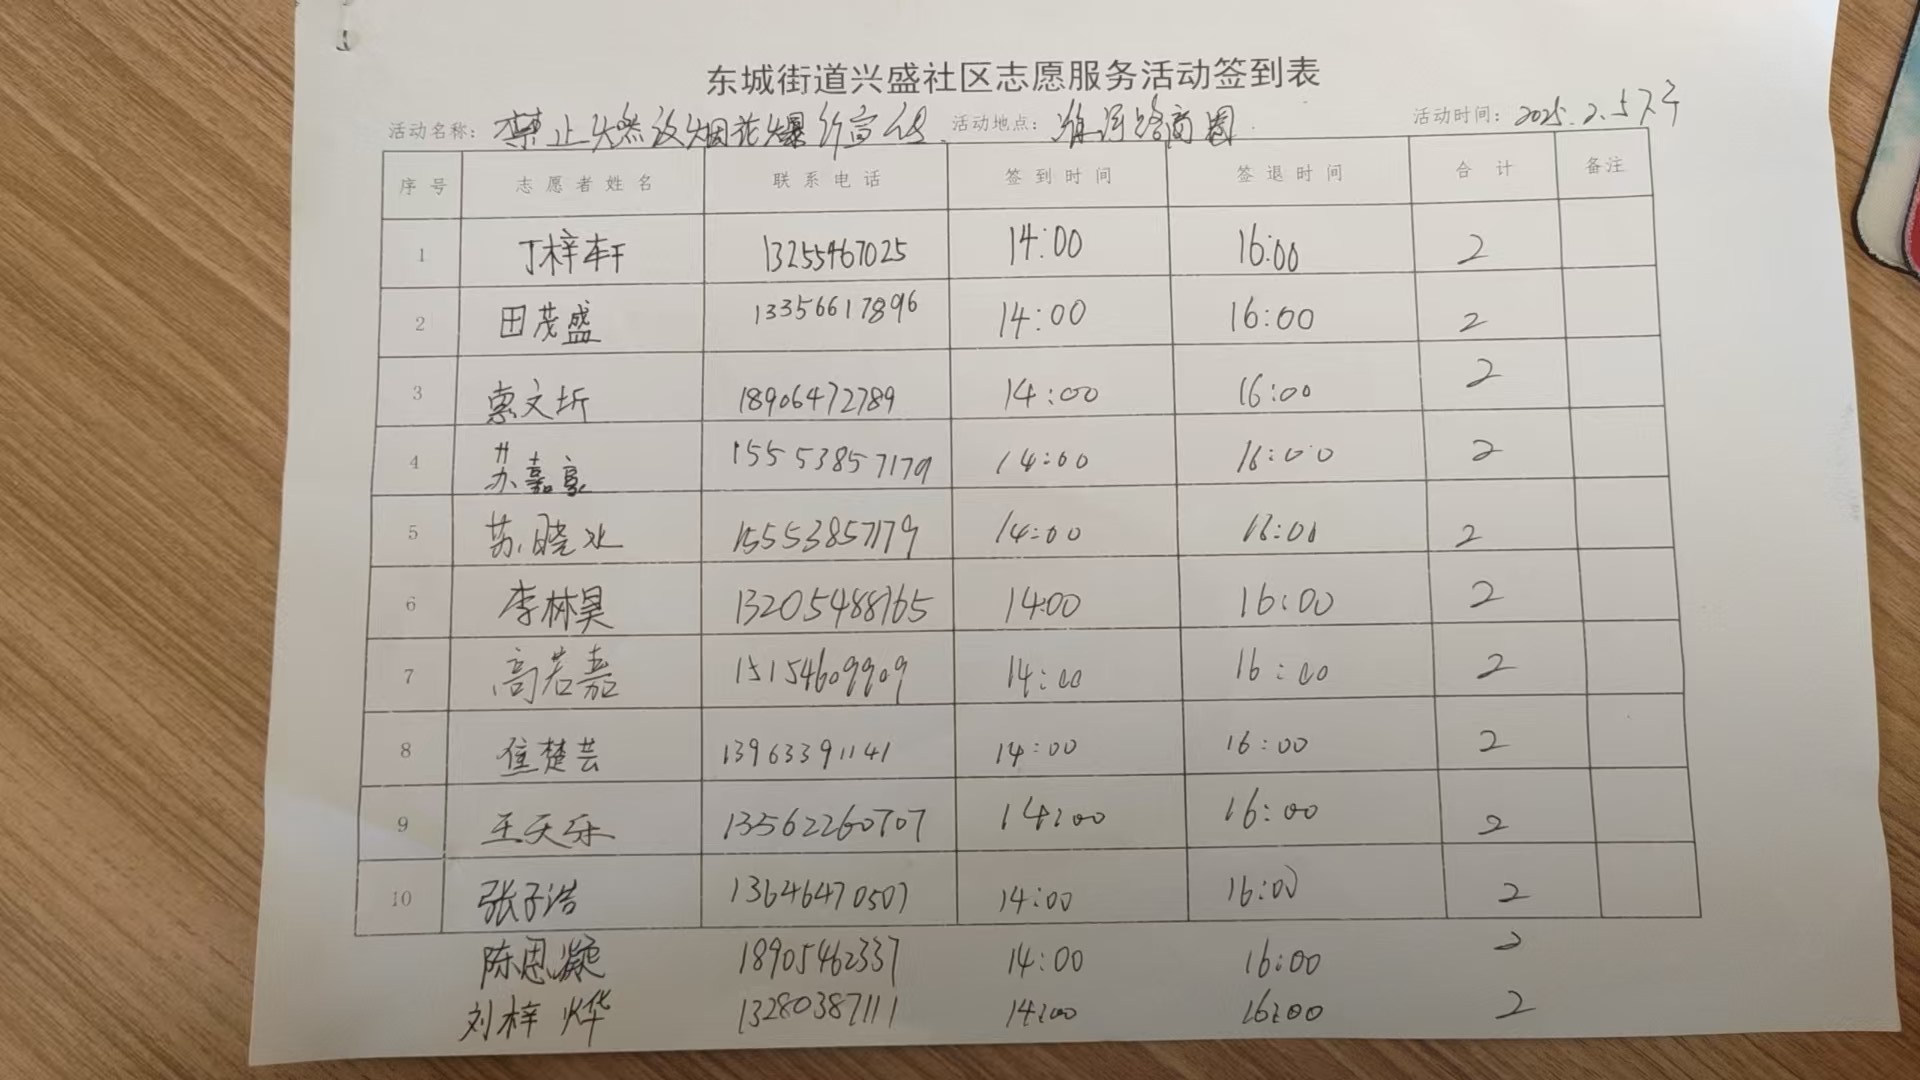 东城街道兴盛社区志愿服务活动签到表
活动名称: 禁止燃放烟花爆竹宣传 活动地点: 路商圈 活动时间: 2025.2.5下午
序号 志愿者姓名 联系电话 签到时间 签退时间 合计 备注
1 丁梓轩 13255467025 14:00 16:00 2
2 田茂盛 13356617896 14:00 16:00 2
3 惠文圻 18906472789 14:00 16:00 2
4 苏嘉豪 15553857179 14:00 16:00 2
5 苏晓冰 15553857179 14:00 16:00 2
6 李林昊 13205488765 14:00 16:00 2
7 高若嘉 15154609909 14:00 16:00 2
8 焦楚芸 13963391141 14:00 16:00 2
9 王天乐 13562260707 14:00 16:00 2
10 张子浩 13646470507 14:00 16:00 2
陈思凝 18905462337 14:00 16:00 2
刘梓烨 13280387111 14:00 16:00 2